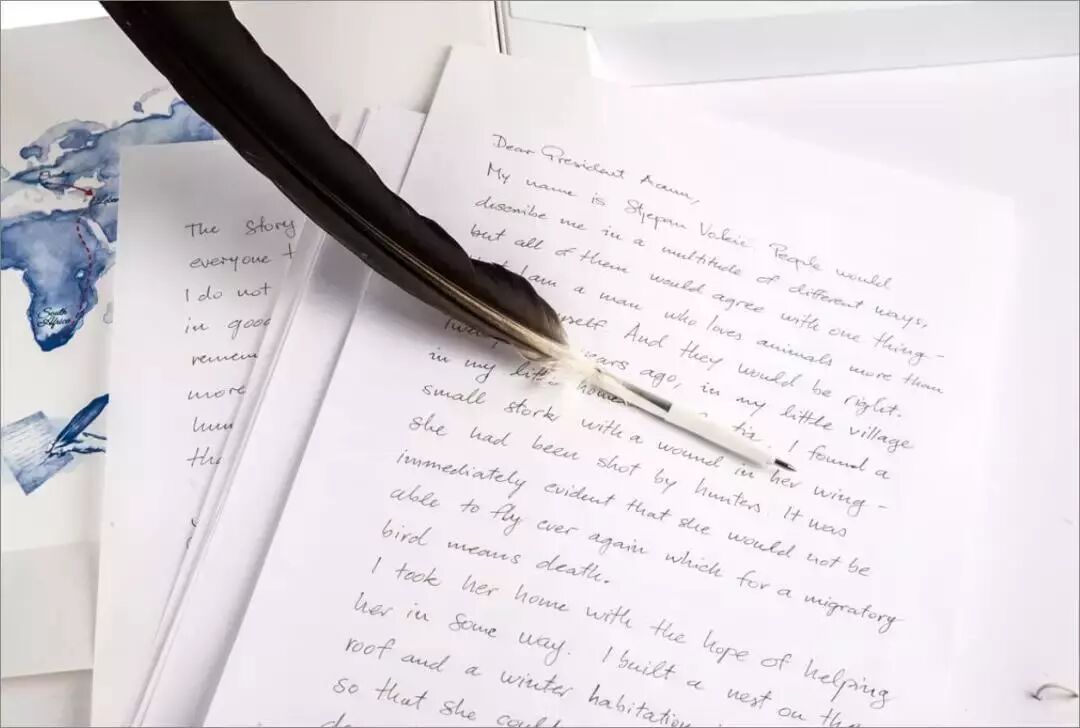 South
Africa
The Story
everyone t
I do not
in good
remem
more
hum
the
Dear President Aoun,
My name is Stjepan Vokić. People would
describe me in a multitude of different ways,
but all of them would agree with one thing-
I am a man who loves animals more than
myself. And they would be right.
years ago, in my little village
in my little home I found a
small stork with a wound in her wing-
she had been shot by hunters. It was
immediately evident that she would not be
able to fly ever again which for a migratory
bird means death.
I took her home with the hope of helping
her in some way. I built a nest on the
roof and a winter habitation
so that she could